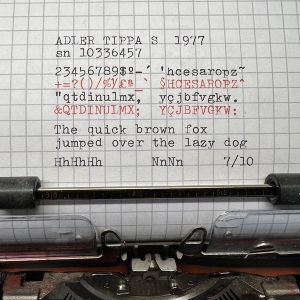 ADLER TIPPA S 1977
sn 10336457
23456789$º-´ 'hcesaropz~
+=?()/%Ƴ£ª_` §HCESAROPZ^
"qtdinulmx, yçjbfvgkw.
&QTDINULMX; YÇJBFVGKW:
The quick brown fox
jumped over the lazy dog
HhHhHh NnNn 7/10